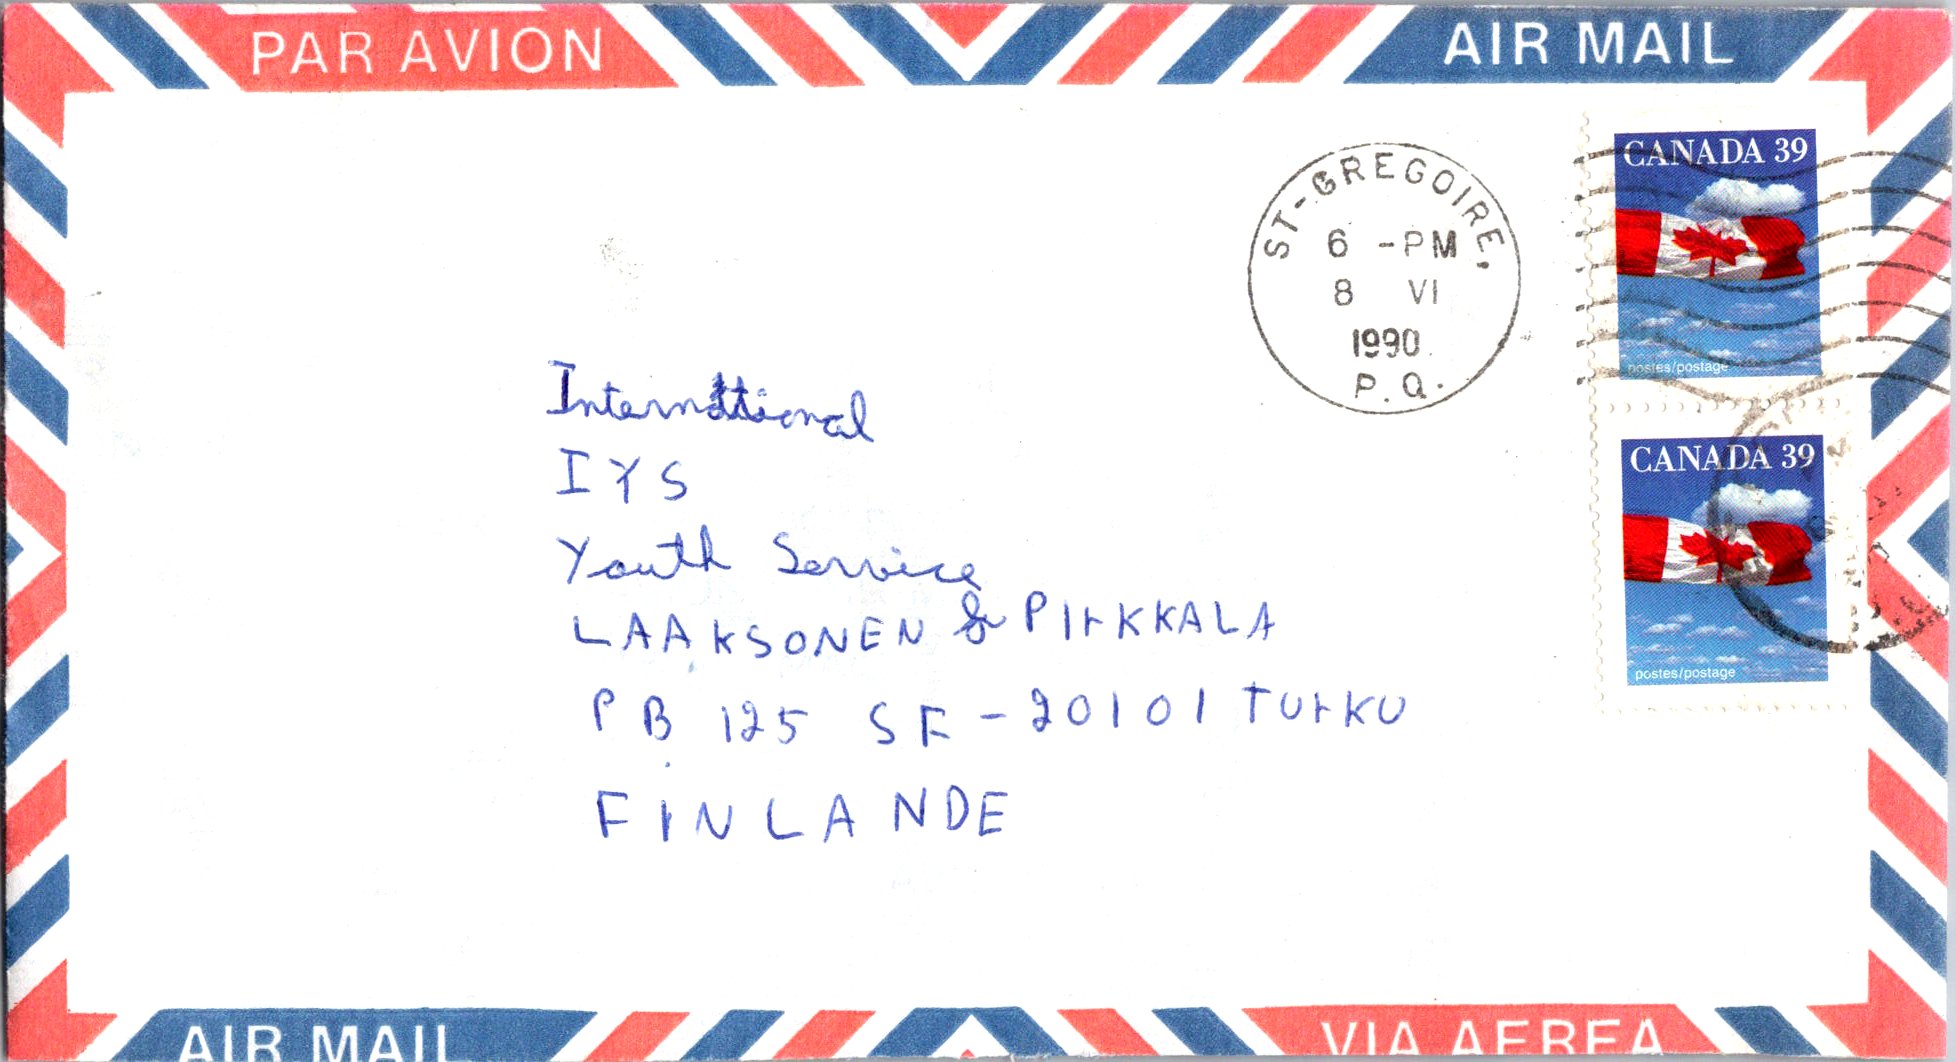 PAR AVION
AIR MAIL
CANADA 39
postes/postage
ST-GREGOIRE,
6 -PM
8 VI
1990
P.Q.
CANADA 39
postes/postage
International
IYS
Youth Service
LAAKSONEN & PIrKKALA
PB 125 SF-20101 TUrKU
FINLANDE
AIR MAIL
VIA AEREA